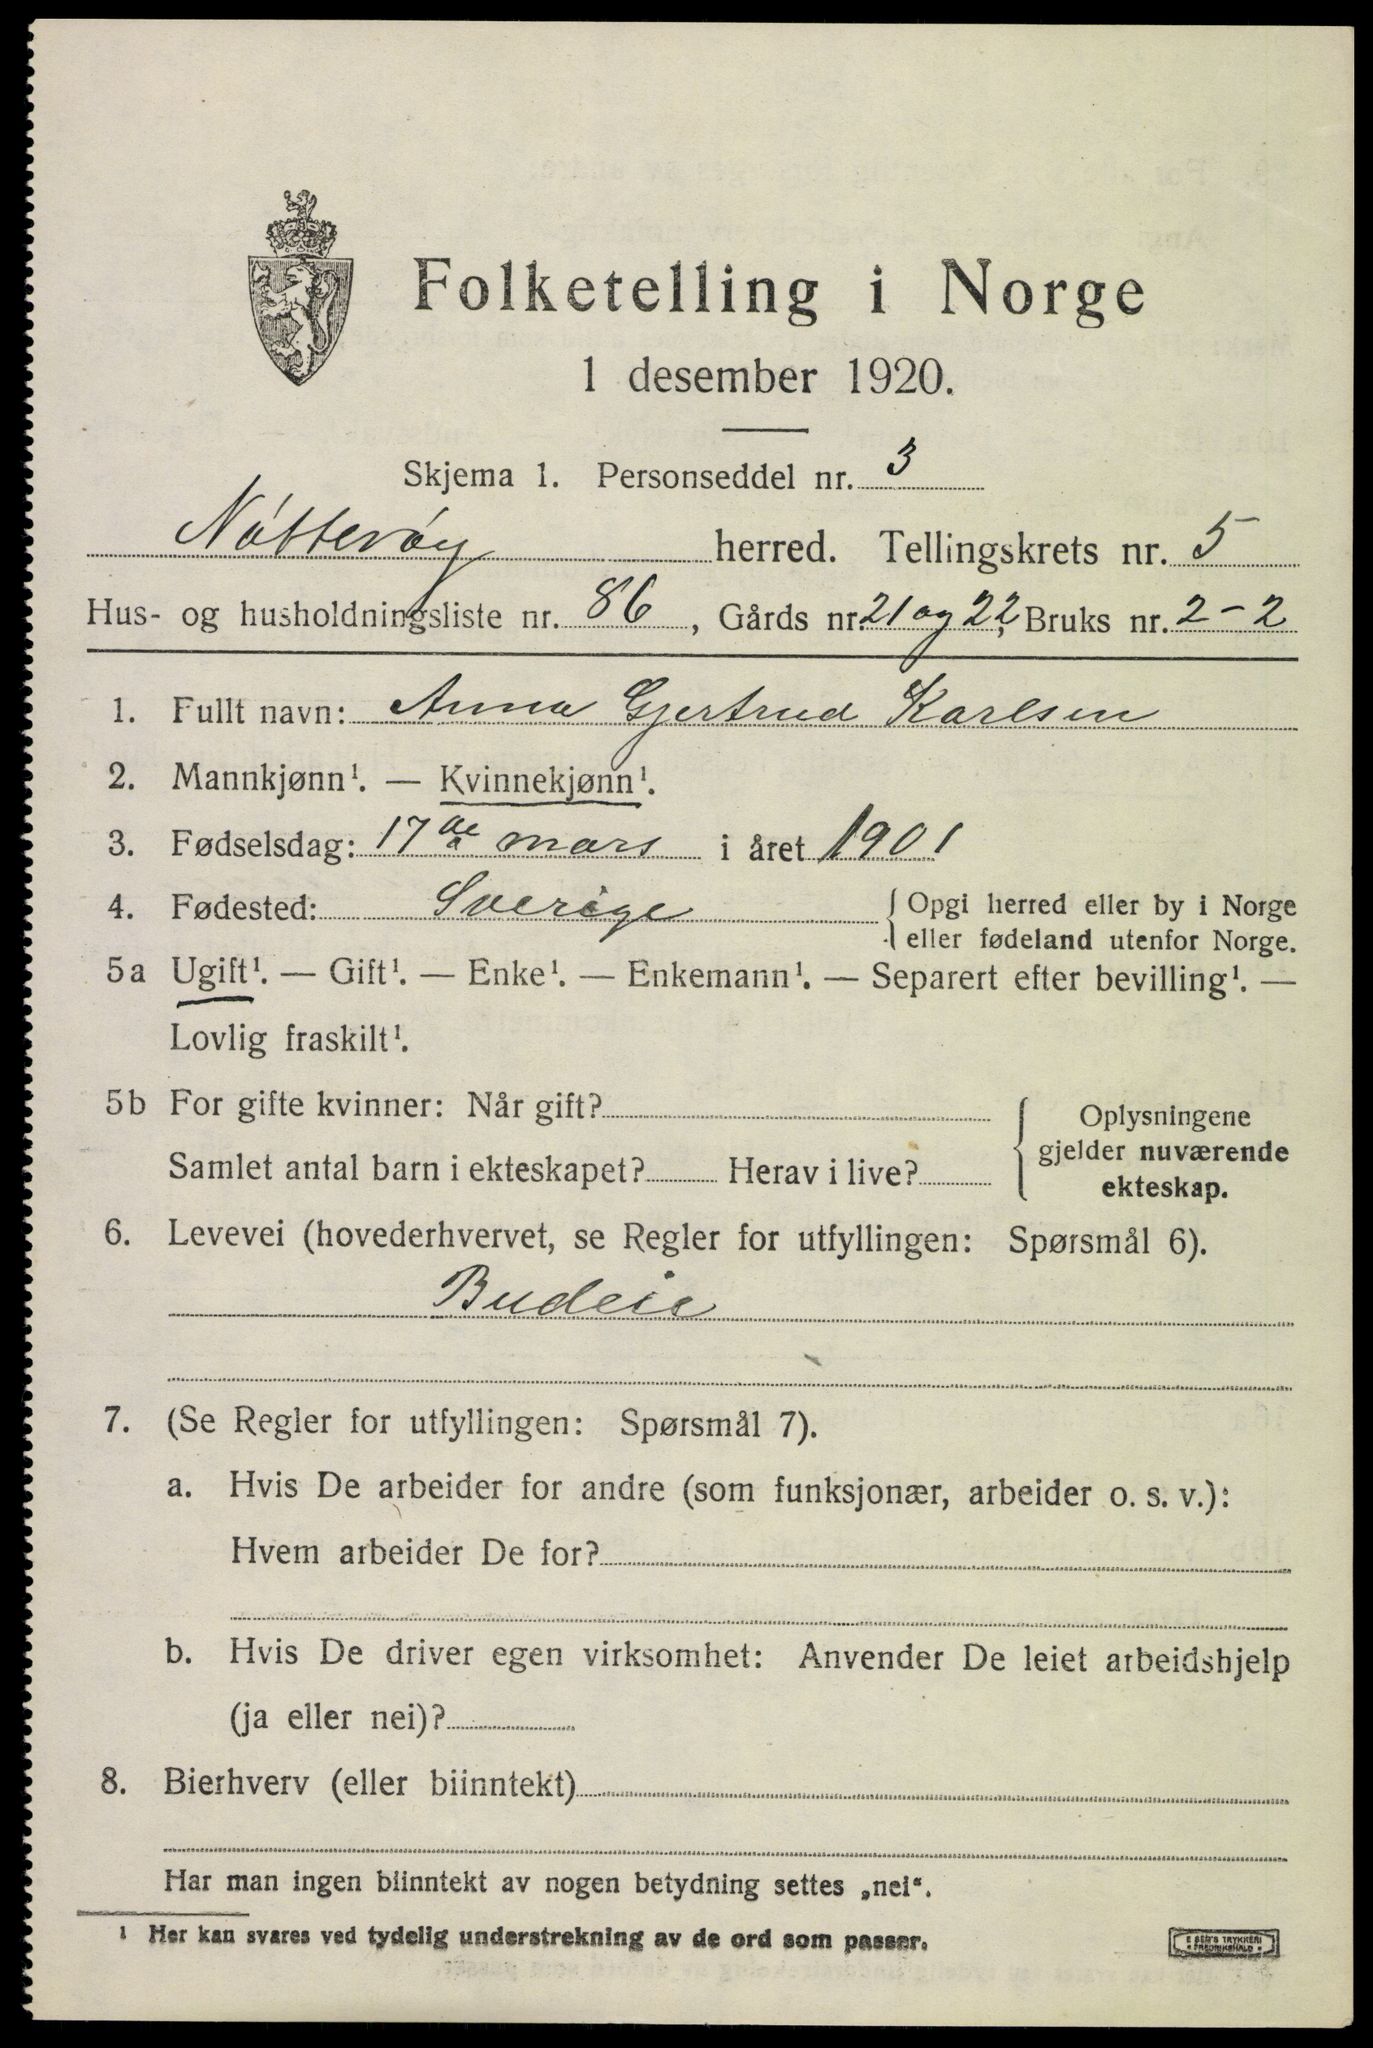 Folketelling i Norge
1 desember 1920.
Skjema 1. Personseddel nr. 3
Nøtterøy herred. Tellingskrets nr. 5
Hus- og husholdningsliste nr. 86, Gårds nr. 21 og 22, Bruks nr. 2-2
1. Fullt navn: Anna Gjertrud Karlsen
2. Mannkjønn¹. — Kvinnekjønn¹.
3. Fødselsdag: 17de mars i året 1901
4. Fødested: Sverige { Opgi herred eller by i Norge
eller fødeland utenfor Norge.
5a Ugift¹. — Gift¹. — Enke¹. — Enkemann¹. — Separert efter bevilling¹. —
Lovlig fraskilt¹.
5b For gifte kvinner: Når gift?
Samlet antal barn i ekteskapet? Herav i live?
Oplysningene
gjelder nuværende
ekteskap.
6. Levevei (hovederhvervet, se Regler for utfyllingen: Spørsmål 6).
Budeie
7. (Se Regler for utfyllingen: Spørsmål 7).
a. Hvis De arbeider for andre (som funksjonær, arbeider o. s. v.):
Hvem arbeider De for?
b. Hvis De driver egen virksomhet: Anvender De leiet arbeidshjelp
(ja eller nei)?
8. Bierhverv (eller biinntekt)
Har man ingen biinntekt av nogen betydning settes „nei“.
¹ Her kan svares ved tydelig understrekning av de ord som passer.
E SEM'S TRYKKERI
FREDRIKSHALD